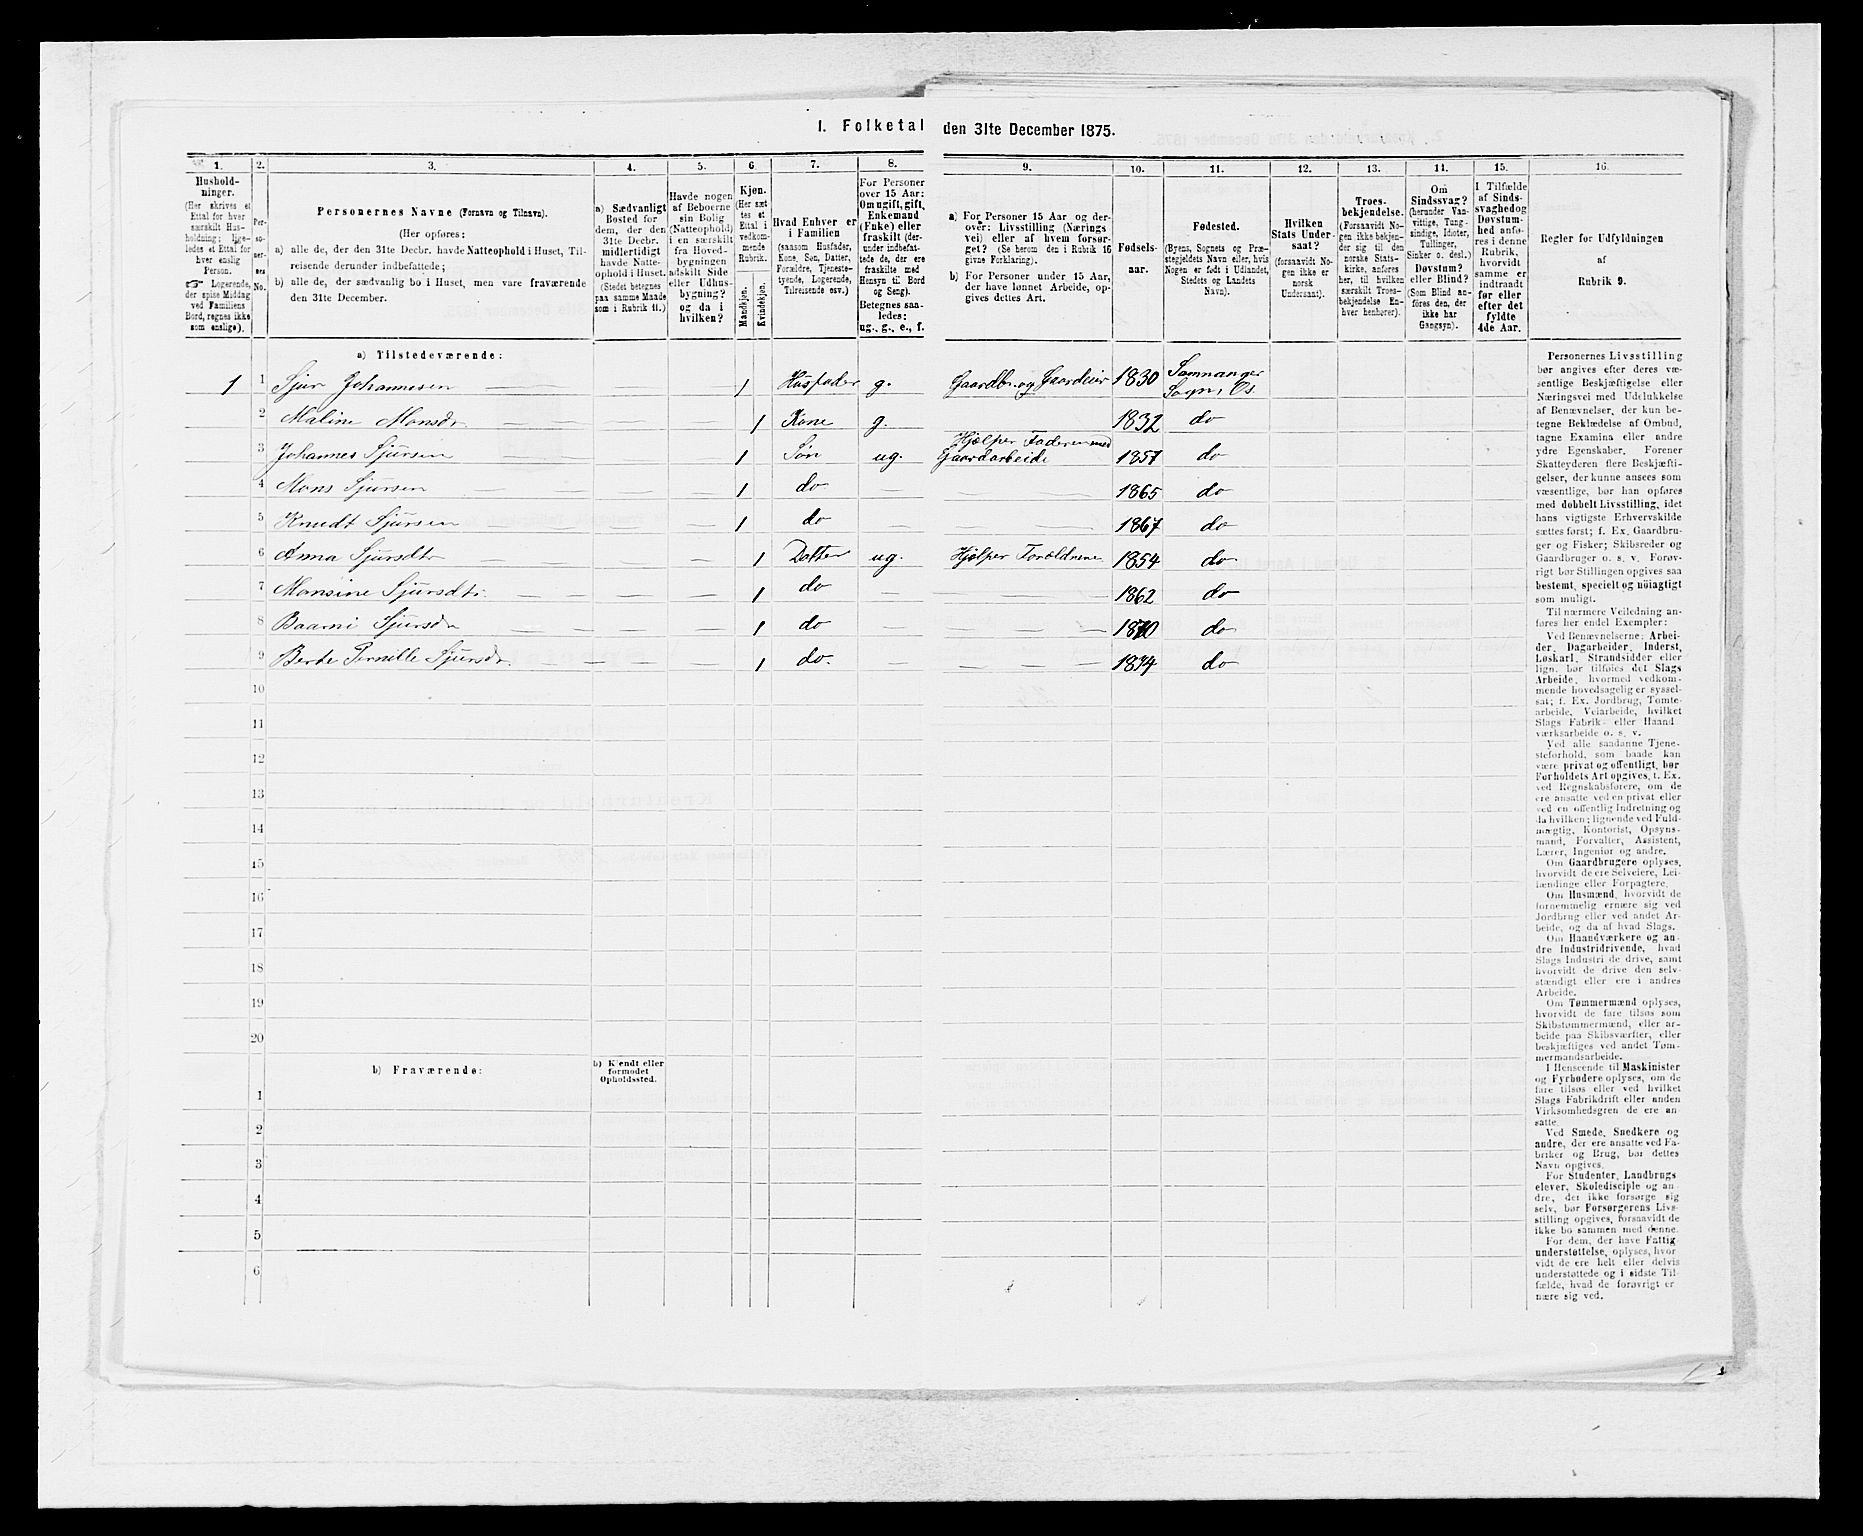 I. Folketal den 31te December 1875.
1. 2. 3. 4. 5. 6 7. 8. 9. 10. 11. 12. 13. 11. 15. 16.
Hushold-
ninger.
(Her skrives et
Ettal for hver
særskilt Hus-
holdning; lige-
ledes et Ettal for
hver enslig
Person.
☞ Logerende,
der spise Middag
ved Familiens
Bord, regnes ikke
som enslige).
Per-
so-
ner-
nes
No.
Personernes Navne (Fornavn og Tilnavn).
(Her opføres:
a) alle de, der den 31te Decbr. havde Natteophold i Huset, Til-
reisende derunder indbefattede;
b) alle de, der sædvanlig bo i Huset, men vare fraværende
den 31te December.
a) Sædvanligt
Bosted for
dem, der den
31te Decbr.
midlertidigt
havde Natte-
ophold i Huset.
(Stedet betegnes
paa samme Maade
som i Rubrik 11.)
Havde nogen
af Beboerne
sin Bolig
(Natteophold)
i en særskilt
fra Hoved-
bygningen
adskilt Side
eller Udhus-
bygning?
og da i
hvilken?
Kjøn.
(Her sæt
tes et
Ettal i
vedkom-
mende
Rubrik.
Mandkjøn.
Kvindekjøn.
Hvad Enhver er
i Familien
(saasom Husfader,
Kone, Søn, Datter,
Forældre, Tjeneste-
tyende, Logerende,
Tilreisende osv.)
For Personer
over 15 Aar:
Om ugift, gift,
Enkemand
(Enke) eller
fraskilt (der-
under indbefat-
tede de, der ere
fraskilte med
Hensyn til Bord
og Seng).
Betegnes saa-
ledes:
ug., g., e., f.
a) For Personer 15 Aar og der-
over: Livsstilling (Nærings
vei) eller af hvem forsør-
get? (Se herom den i Rubrik 16
givne Forklaring).
b) For Personer under 15 Aar,
der have lønnet Arbeide, op-
gives dettes Art.
Fødsels-
aar.
Fødested.
(Byens, Sognets og Præ-
stegjeldets Navn eller, hvis
Nogen er født i Udlandet,
Stedets og Landets
Navn).
Hvilken
Stats Under-
saat?
(forsaavidt No-
gen ikke er
norsk
Undersaat).
Troes-
bekjendelse.
(Forsaavidt No-
gen ikke bekjen-
der sig til den
norske Stats-
kirke, anføres
her, til hvilken
særskilt Troes-
bekjendelse En-
hver henhører).
Om
Sindssvag?
(herunder Van-
vittige, Tung-
sindige, Idioter,
Tullinger,
Sinker o. desl.)
Døvstum?
eller Blind?
(Som Blind an-
føres den, der
ikke har
Gangsyn).
I Tilfælde
af Sinds-
svaghed og
Døvstum-
hed anfø-
res i denne
Rubrik,
hvorvidt
samme er
indtraadt
før eller
efter det
fyldte
4de Aar.
Regler for Udfyldningen
af
Rubrik 9.
a) Tilstedeværende:
1 1 Sjur Johannesen — — 1 Husfader g. Gaardbr. og Gaardeier 1830 Samnanger Sogn, Os.
2 Maline Monsdr — — — 1 Kone g. 1832 do
3 Johannes Sjursen — — — 1 Søn ug. Hjælper Faderen med Gaardarbeide 1857 do
4 Mons Sjursen — — — 1 do — — 1865 do
5 Knudt Sjursen — — — 1 do — — 1867 do
6 Anna Sjursdtr — — — 1 Datter ug. Hjælper Forældrene 1854 do
7 Monsine Sjursdtr — — — 1 do — — 1862 do
8 Baarni Sjursdr — — — 1 do — — 1870 do
9 Berte Pernille Sjursdr. — — — 1 do. — 1874 do
10
11
12
13
14
15
16
17
18
19
20
b) Fraværende:
b) Kjendt eller
formodet
Opholdssted.
1
2
3
4
5
6
Personernes Livsstilling
bør angives efter deres væ-
sentlige Beskjæftigelse eller
Næringsvei med Udelukkelse
af Benævnelser, der kun be-
tegne Beklædelse af Ombud,
tagne Examina eller andre
ydre Egenskaber. Forener
Skatteyderen flere Beskjæfti-
gelser, der kunne ansees som
væsentlige, bør han opføres
med dobbelt Livsstilling, idet
hans vigtigste Erhvervskilde
sættes først; f. Ex. Gaardbru-
ger og Fisker; Skibsreder og
Gaardbruger o. s. v. Forøv-
rigt bør Stillingen opgives saa
bestemt, specielt og nøiagtigt
som muligt.
Til nærmere Veiledning an-
føres her endel Exempler:
Ved Benævnelserne: Arbei-
der, Dagarbeider, Inderst,
Løskarl, Strandsidder eller
lign. bør tilføies det Slags
Arbeide, hvormed vedkom-
mende hovedsagelig er syssel-
sat; f. Ex. Jordbrug, Tomte-
arbeide, Veiarbeide, hvilket
Slags Fabrik- eller Haand
værksarbeide o. s. v.
Ved alle saadanne Tjene-
steforhold, som baade kan
være privat og offentligt, bør
Forholdets Art opgives, t. Ex.
ved Regnskabsførere, om de
ere ansatte ved en privat eller
ved en offentlig Indretning og
da hvilken; lignende ved Fuld-
mægtig, Kontorist, Opsyns-
mand, Forvalter, Assistent,
Lærer, Ingeniør og andre.
Om Gaardbrugere oplyses,
hvorvidt de ere Selveiere, Lei-
lændinge eller Forpagtere.
Om Husmænd, hvorvidt de
fornemmelig ernære sig ved
Jordbrug eller ved andet Ar-
beide, og da af hvad Slags.
Om Haandværkere og an-
dre Industridrivende, hvad
Slags Industri de drive, samt
hvorvidt de drive den selv-
stændigt eller ere i andres
Arbeide.
Om Tømmermænd oplyses,
hvorvidt de fare tilsøs som
Skibstømmermænd, eller ar-
beide paa Skibsværfter, eller
beskjæftiges ved andet Tøm-
mermandsarbeide.
I Henseende til Maskinister
og Fyrbødere oplyses, om de
fare tilsøs eller ved hvilket
Slags Fabrikdrift eller anden
Virksomhedsgren de ere an-
satte.
Ved Smede, Snedkere og
andre, der ere ansatte ved Fa-
briker og Brug, bør dettes
Navn opgives.
For Studenter, Landbrugs
elever, Skoledisciple og an-
dre, der ikke forsørge sig
selv, bør Forsørgerens Livs-
stilling opgives, forsaavidt de
ikke bo sammen med denne.
For dem, der have Fattig-
understøttelse, oplyses, hvor
vidt de ere helt eller delvis
understøttede og i sidste Til-
fælde, hvad de forøvrigt er
nære sig ved.